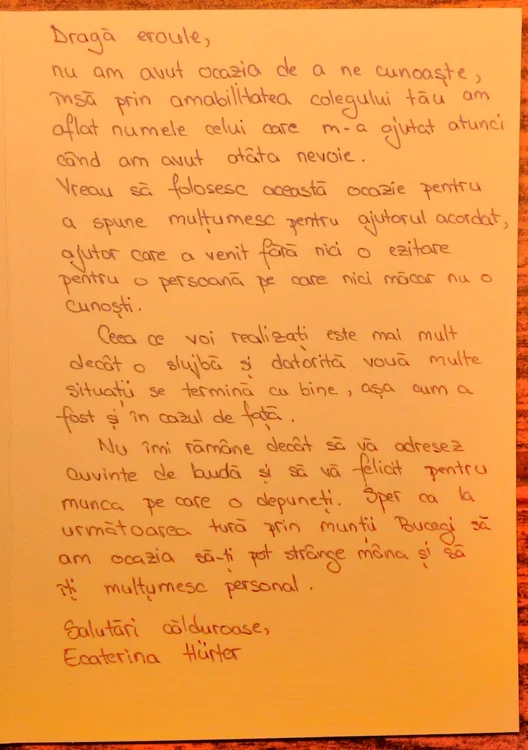 Dragă eroule,
nu am avut ocazia de a ne cunoaște,
însă prin amabilitatea colegului tău am
aflat numele celui care m-a ajutat atunci
când am avut atâta nevoie.
Vreau să folosesc această ocazie pentru
a spune mulțumesc pentru ajutorul acordat,
ajutor care a venit fără nici o ezitare
pentru o persoană pe care nici măcar nu o
cunoști.
Ceea ce voi realizați este mai mult
decât o slujbă și datorită vouă multe
situații se termină cu bine, așa cum a
fost și în cazul de față.
Nu îmi rămâne decât să vă adresez
cuvinte de laudă și să vă felicit pentru
munca pe care o depuneți. Sper ca la
următoarea tură prin munții Bucegi să
am ocazia să-ți pot strânge mâna și să
îți mulțumesc personal.
Salutări călduroase,
Ecaterina Hürter